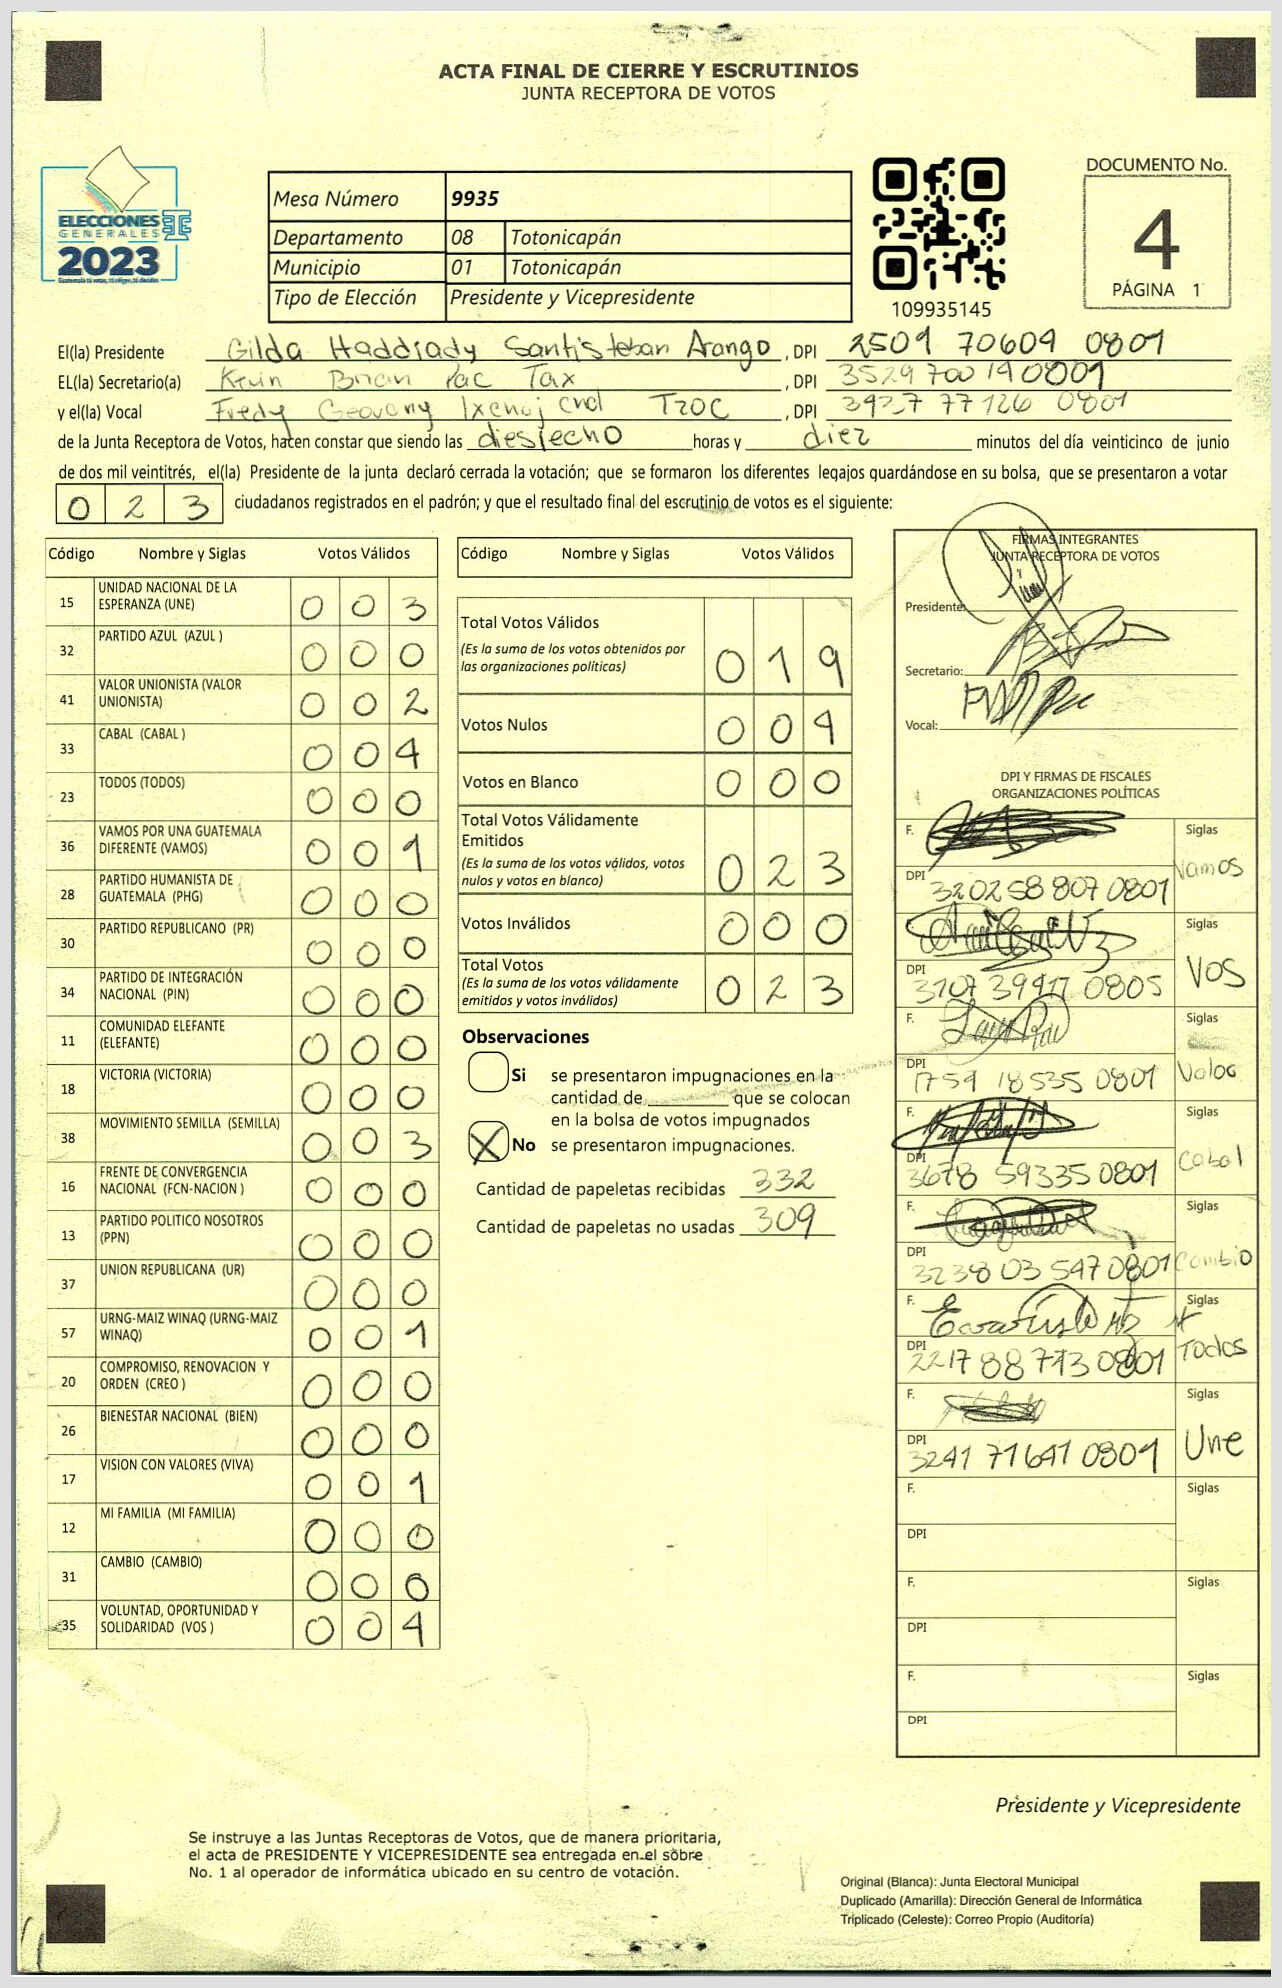 ACTA FINAL DE CIERRE Y ESCRUTINIOS
JUNTA RECEPTORA DE VOTOS
ELECCIONES
GENERALES
2023
Mesa Número 9935
Departamento 08 Totonicapán
Municipio 01 Totonicapán
Tipo de Elección Presidente y Vicepresidente
109935145
DOCUMENTO No.
4
PÁGINA 1
El(la) Presidente Gilda Haddiady Santisteban Arango , DPI 2501 70609 0801
EL(la) Secretario(a) Kevin Brian Pac Tax , DPI 3529 70019 0801
y el(la) Vocal Fredy Geovany , DPI 3927 77126 0801
de la Junta Receptora de Votos, hacen constar que siendo las diesiocho horas y diez minutos del día veinticinco de junio
de dos mil veintitrés, el(la) Presidente de la junta declaró cerrada la votación; que se formaron los diferentes legajos guardándose en su bolsa, que se presentaron a votar
0 2 3 ciudadanos registrados en el padrón; y que el resultado final del escrutinio de votos es el siguiente:
Código Nombre y Siglas Votos Válidos
15 UNIDAD NACIONAL DE LA ESPERANZA (UNE) 0 0 3
32 PARTIDO AZUL (AZUL ) 0 0 0
41 VALOR UNIONISTA (VALOR UNIONISTA) 0 0 2
33 CABAL (CABAL ) 0 0 4
23 TODOS (TODOS) 0 0 0
36 VAMOS POR UNA GUATEMALA DIFERENTE (VAMOS) 0 0 1
28 PARTIDO HUMANISTA DE GUATEMALA (PHG) 0 0 0
30 PARTIDO REPUBLICANO (PR) 0 0 0
34 PARTIDO DE INTEGRACIÓN NACIONAL (PIN) 0 0 0
11 COMUNIDAD ELEFANTE (ELEFANTE) 0 0 0
18 VICTORIA (VICTORIA) 0 0 0
38 MOVIMIENTO SEMILLA (SEMILLA) 0 0 3
16 FRENTE DE CONVERGENCIA NACIONAL (FCN-NACION ) 0 0 0
13 PARTIDO POLITICO NOSOTROS (PPN) 0 0 0
37 UNION REPUBLICANA (UR) 0 0 0
57 URNG-MAIZ WINAQ (URNG-MAIZ WINAQ) 0 0 1
20 COMPROMISO, RENOVACION Y ORDEN (CREO ) 0 0 0
26 BIENESTAR NACIONAL (BIEN) 0 0 0
17 VISION CON VALORES (VIVA) 0 0 1
12 MI FAMILIA (MI FAMILIA) 0 0 0
31 CAMBIO (CAMBIO) 0 0 0
35 VOLUNTAD, OPORTUNIDAD Y SOLIDARIDAD (VOS ) 0 0 4
Código Nombre y Siglas Votos Válidos
Total Votos Válidos 0 1 9
(Es la suma de los votos obtenidos por
las organizaciones políticas)
Votos Nulos 0 0 4
Votos en Blanco 0 0 0
Total Votos Válidamente
Emitidos 0 2 3
(Es la suma de los votos válidos, votos
nulos y votos en blanco)
Votos Inválidos 0 0 0
Total Votos 0 2 3
(Es la suma de los votos válidamente
emitidos y votos inválidos)
Observaciones
Si se presentaron impugnaciones en la
cantidad de que se colocan
en la bolsa de votos impugnados
X No se presentaron impugnaciones.
Cantidad de papeletas recibidas 332
Cantidad de papeletas no usadas 309
FIRMAS INTEGRANTES
JUNTA RECEPTORA DE VOTOS
Presidente:
Secretario:
Vocal:
DPI Y FIRMAS DE FISCALES
ORGANIZACIONES POLÍTICAS
F. Siglas
DPI 320258807 0801 Vamos
F. Siglas
DPI 0805 VOS
F. Siglas
DPI 1759 18535 0801 Valor
F. Siglas
DPI 3678 59335 0801 Cabal
F. Siglas
DPI 3238 03 597 0801 Cambio
F. Siglas
DPI 2217 88 773 0801 Todos
F. Siglas
DPI 3241 71641 0801 Une
F. Siglas
DPI
F. Siglas
DPI
F. Siglas
DPI
Presidente y Vicepresidente
Se instruye a las Juntas Receptoras de Votos, que de manera prioritaria,
el acta de PRESIDENTE Y VICEPRESIDENTE sea entregada en el sobre
No. 1 al operador de informática ubicado en su centro de votación.
Original (Blanca): Junta Electoral Municipal
Duplicado (Amarilla): Dirección General de Informática
Triplicado (Celeste): Correo Propio (Auditoría)